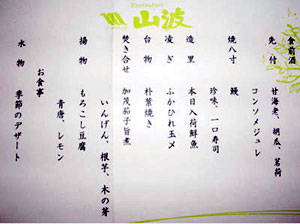 Restaurant
山波
食前酒
先付　甘海老、胡瓜、茗荷
コンソメジュレ
焼八寸　鰻
珍味、一口寿司
造里　本日入荷鮮魚
凌ぎ　ふかひれ玉〆
台物　朴葉焼き
焚き合せ　加茂茄子旨煮
いんげん、根芋、木の芽
揚物　もろこし豆腐
青唐、レモン
お食事
水物　季節のデザート